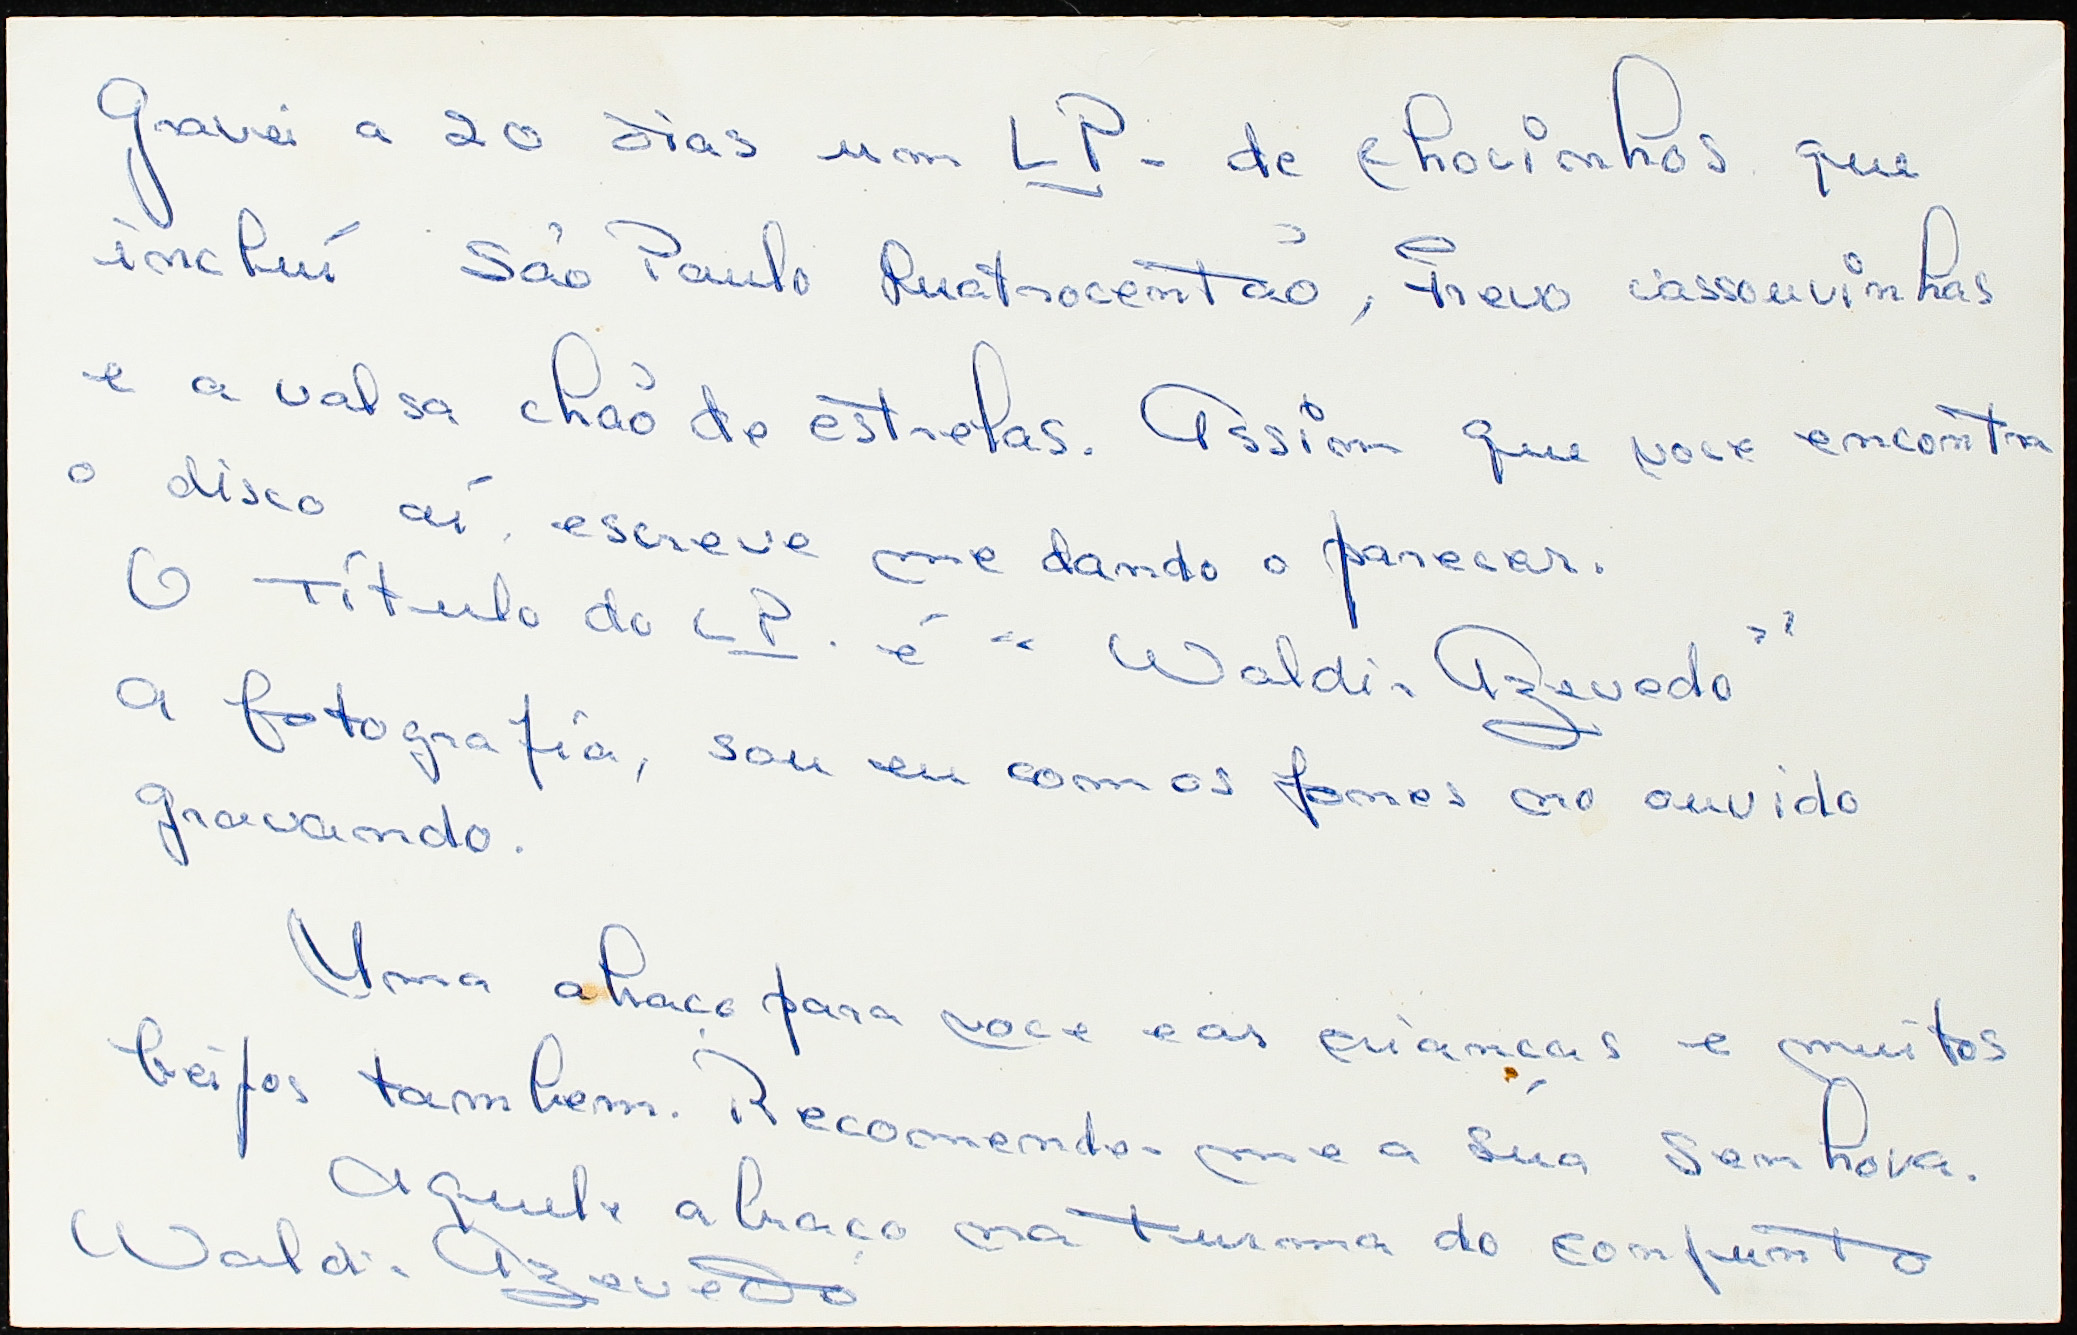 Gravei a 20 dias um LP - de chorinhos que
incluí São Paulo Quatrocentão, Frevo vassourinhas
e a valsa chão de estrelas. Assim que voce encontra
o disco aí, escreve me dando o parecer.
O Título do LP. é " Waldir Azevedo "
a fotografia, sou eu com os fones no ouvido
gravando.
Uma abraço para voce e as crianças e muitos
beijos tambem. Recomende-me a súa senhora.
Aquele abraço na turma do conjunto
Waldir Azevedo